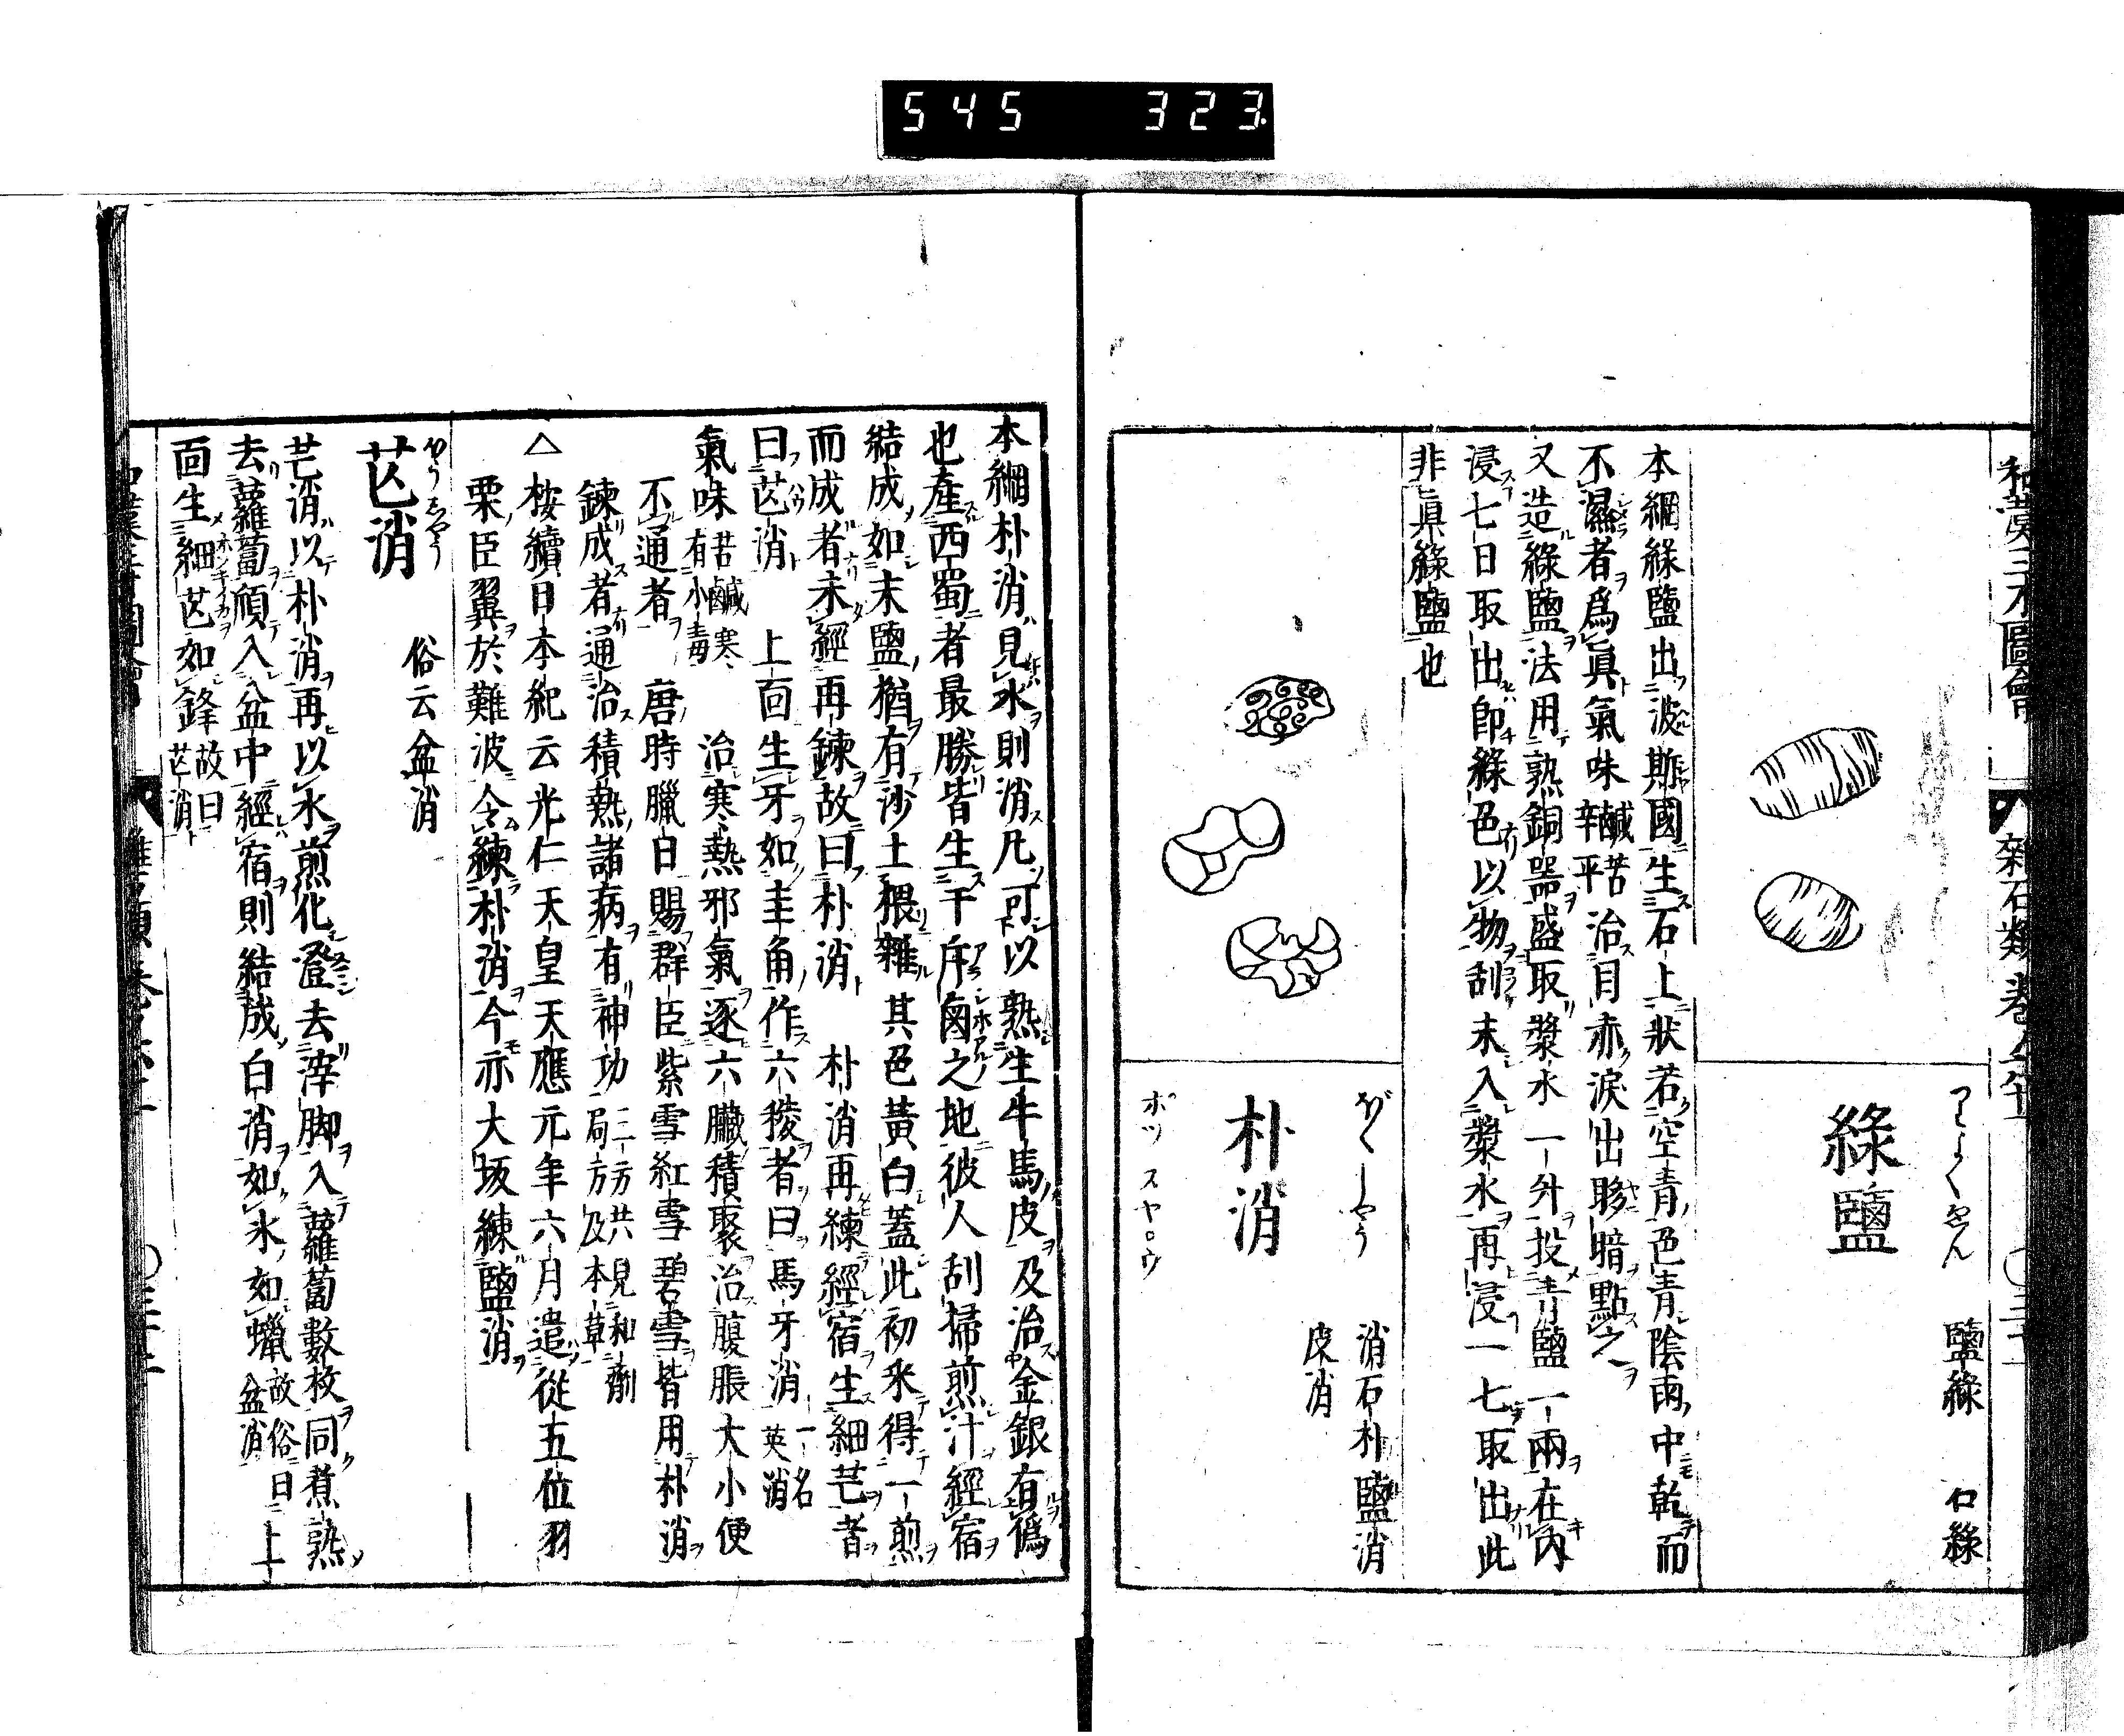 545 323
和漢三才圖會
雜石類
りよくゑん
綠鹽
鹽綠 石綠
本綱綠鹽出波斯國生石上狀若空青色青陰雨中乾而
不濕者爲眞氣味鹹苦辛平治目赤淚出眵暗點之
又造綠鹽法用熟銅器盛取漿水一升投青鹽一兩在內
浸七日取出卽綠色以物刮末入漿水再浸一七取出此
非眞綠鹽也
ぼくしやう
朴消
ポツ スヤ○ウ
消石朴 鹽消
皮消
本綱朴消見水則消凡可以熟生牛馬皮及治金銀有僞
也產西蜀者最勝皆生干斥鹵之地彼人刮掃煎汁經宿
結成如末鹽猶有沙土猥雜其色黃白蓋此初采得一煎
而成者未經再鍊故曰朴消 朴消再練經宿生細芒者
曰芒消 上面生牙如圭角作六稜者曰馬牙消一名英消
氣味苦鹹寒有小毒 治寒熱邪氣逐六臟積聚治腹脹大小便
不通者 唐時臘日賜群臣紫雪紅雪碧雪皆用朴消
鍊成者通治積熱諸病有神功三方共見和劑局方及本草
△ 按續日本紀云光仁天皇天應元年六月遣從五位羽
栗臣翼於難波令練朴消今亦大坂練鹽消
芒消
俗云盆消
芒消以朴消再以水煎化澄去滓脚入蘿蔔數枚同煮熟
去蘿蔔傾入盆中經宿則結成白消如氷如蠟故俗曰盆消上
面生細芒如鋒故曰芒消